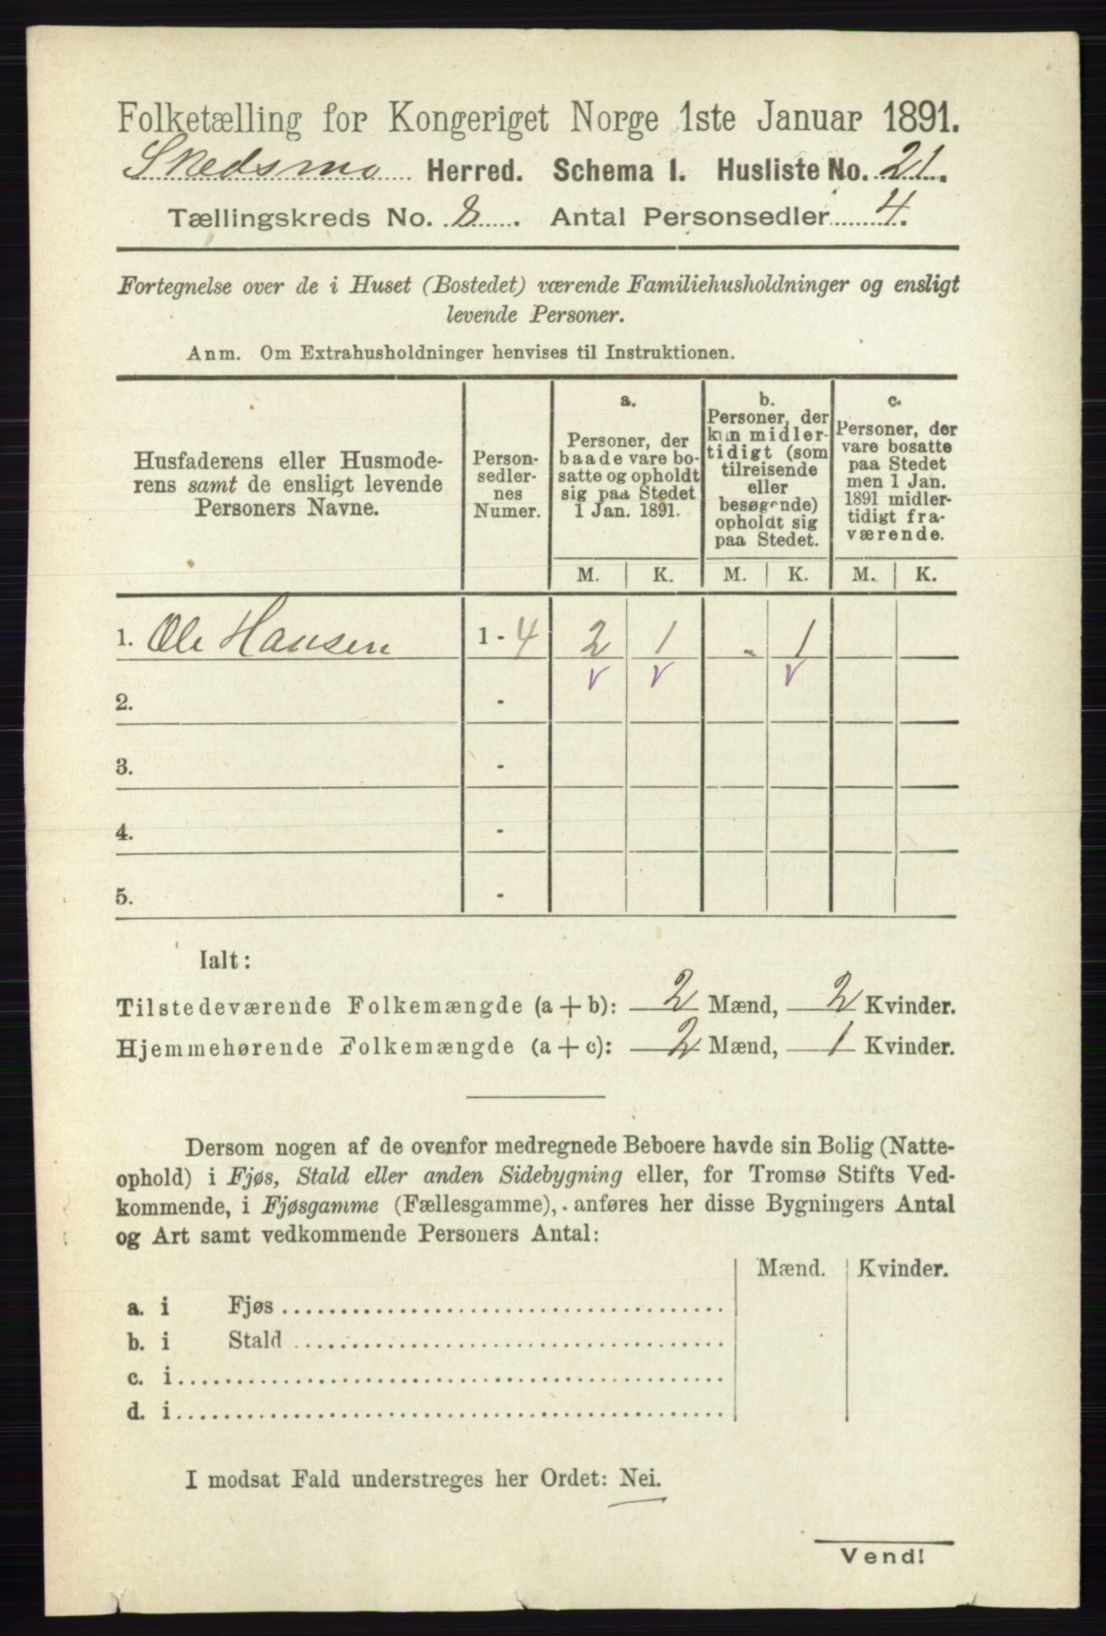 Folketælling for Kongeriget Norge 1ste Januar 1891.
Skedsmo Herred. Schema I. Husliste No. 21.
Tællingskreds No. 8. Antal Personsedler 4.
Fortegnelse over de i Huset (Bostedet) værende Familiehusholdninger og ensligt
levende Personer.
Anm. Om Extrahusholdninger henvises til Instruktionen.
Husfaderens eller Husmode-
rens samt de ensligt levende
Personers Navne.
Person-
sedler-
nes
Numer.
a.
Personer, der
baade vare bo-
satte og opholdt
sig paa Stedet
1 Jan. 1891.
b.
Personer, der
kun midler-
tidigt (som
tilreisende
eller
besøgende)
opholdt sig
paa Stedet.
c.
Personer, der
vare bosatte
paa Stedet
men 1 Jan.
1891 midler-
tidigt fra-
værende.
M. K. M. K. M. K.
1. Ole Hansen 1 - 4 2 1 - 1
v v v
2. -
3. -
4. -
5. -
Ialt:
Tilstedeværende Folkemængde (a + b): 2 Mænd, 2 Kvinder.
Hjemmehørende Folkemængde (a + c): 2 Mænd, 1 Kvinder.
Dersom nogen af de ovenfor medregnede Beboere havde sin Bolig (Natte-
ophold) i Fjøs, Stald eller anden Sidebygning eller, for Tromsø Stifts Ved-
kommende, i Fjøsgamme (Fællesgamme), anføres her disse Bygningers Antal
og Art samt vedkommende Personers Antal:
Mænd. Kvinder.
a. i Fjøs
b. i Stald
c. i
d. i
I modsat Fald understreges her Ordet: Nei.
Vend!